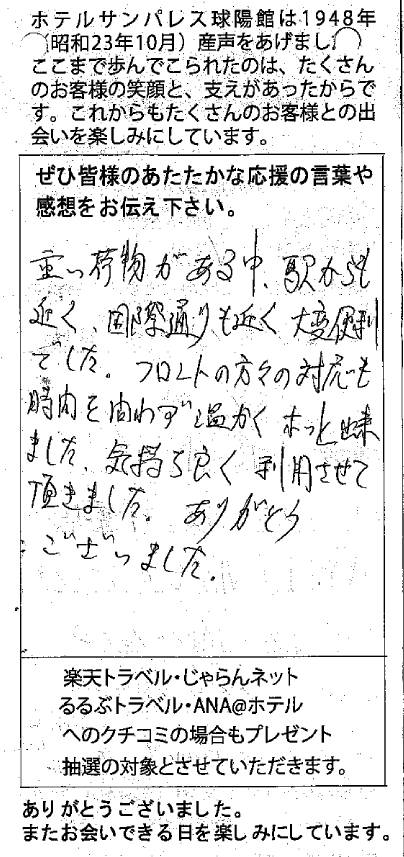 ホテルサンパレス球陽館は1948年
(昭和23年10月）産声をあげまし
ここまで歩んでこられたのは、たくさん
のお客様の笑顔と、支えがあったからで
す。これからもたくさんのお客様との出
会いを楽しみにしています。
ぜひ皆様のあたたかな応援の言葉や
感想をお伝え下さい。
重い荷物がある中、駅からも
近く、国際通りも近く大変便利
でした。フロントの方々の対応も
時間を問わず温かくホッと出来
ました、気持ち良く利用させて
頂きました。ありがとう
ございました。
楽天トラベル・じゃらんネット
るるぶトラベル・ANA@ホテル
へのクチコミの場合もプレゼント
抽選の対象とさせていただきます。
ありがとうございました。
またお会いできる日を楽しみにしています。